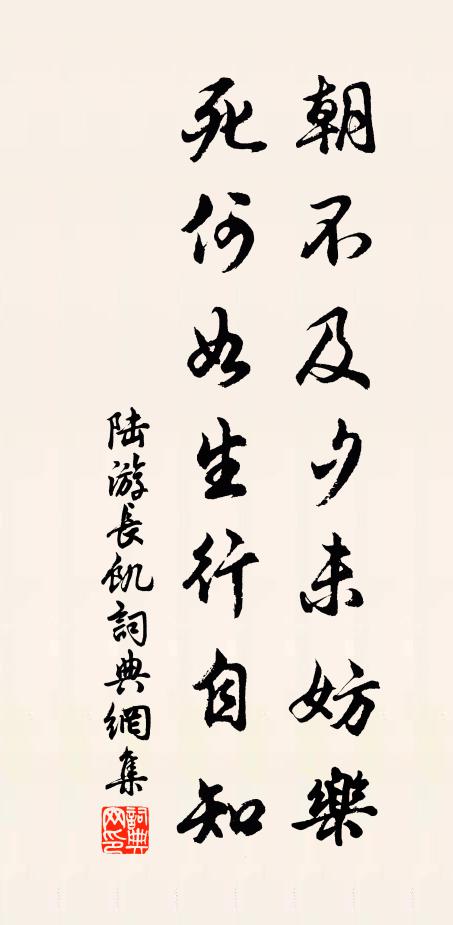 朝不及夕未妨樂
死何如生行自知
陸游長飢詞典網集
詞典網印